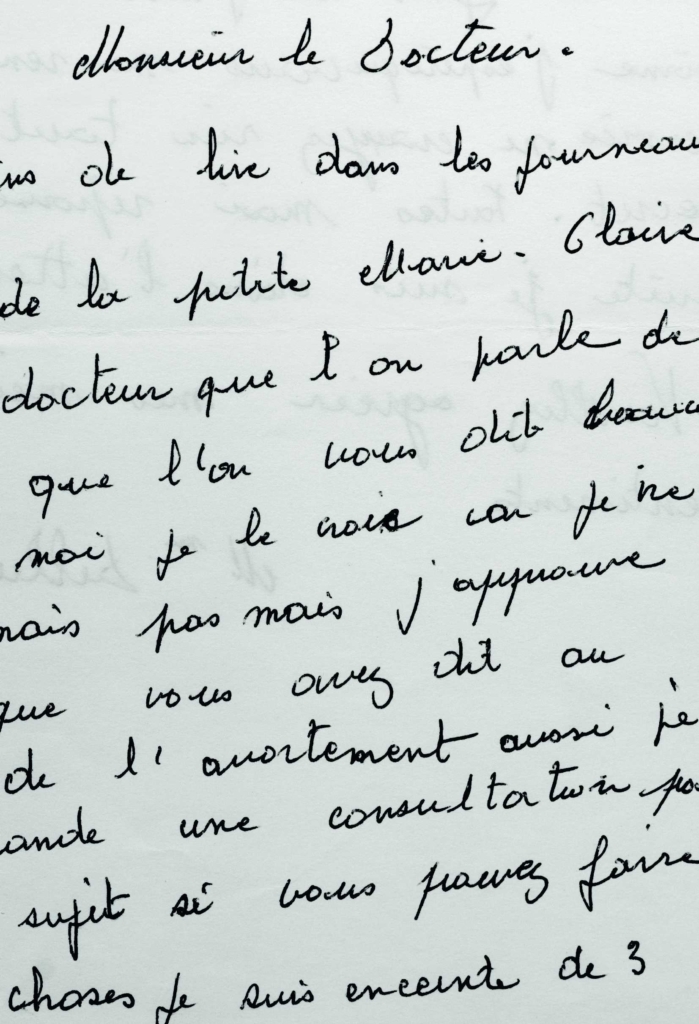 Monsieur le Docteur.
ns de lire dans les journeau
de la petite Marie. Claire
docteur que l'on parle de
que l'on vous dit beauc
moi je le crois car je ne
nais pas mais j'approuve
que vous avez dit au
de l'avortement aussi je
ande une consultation po
sujet si vous pouvez faire
choses je suis enceinte de 3